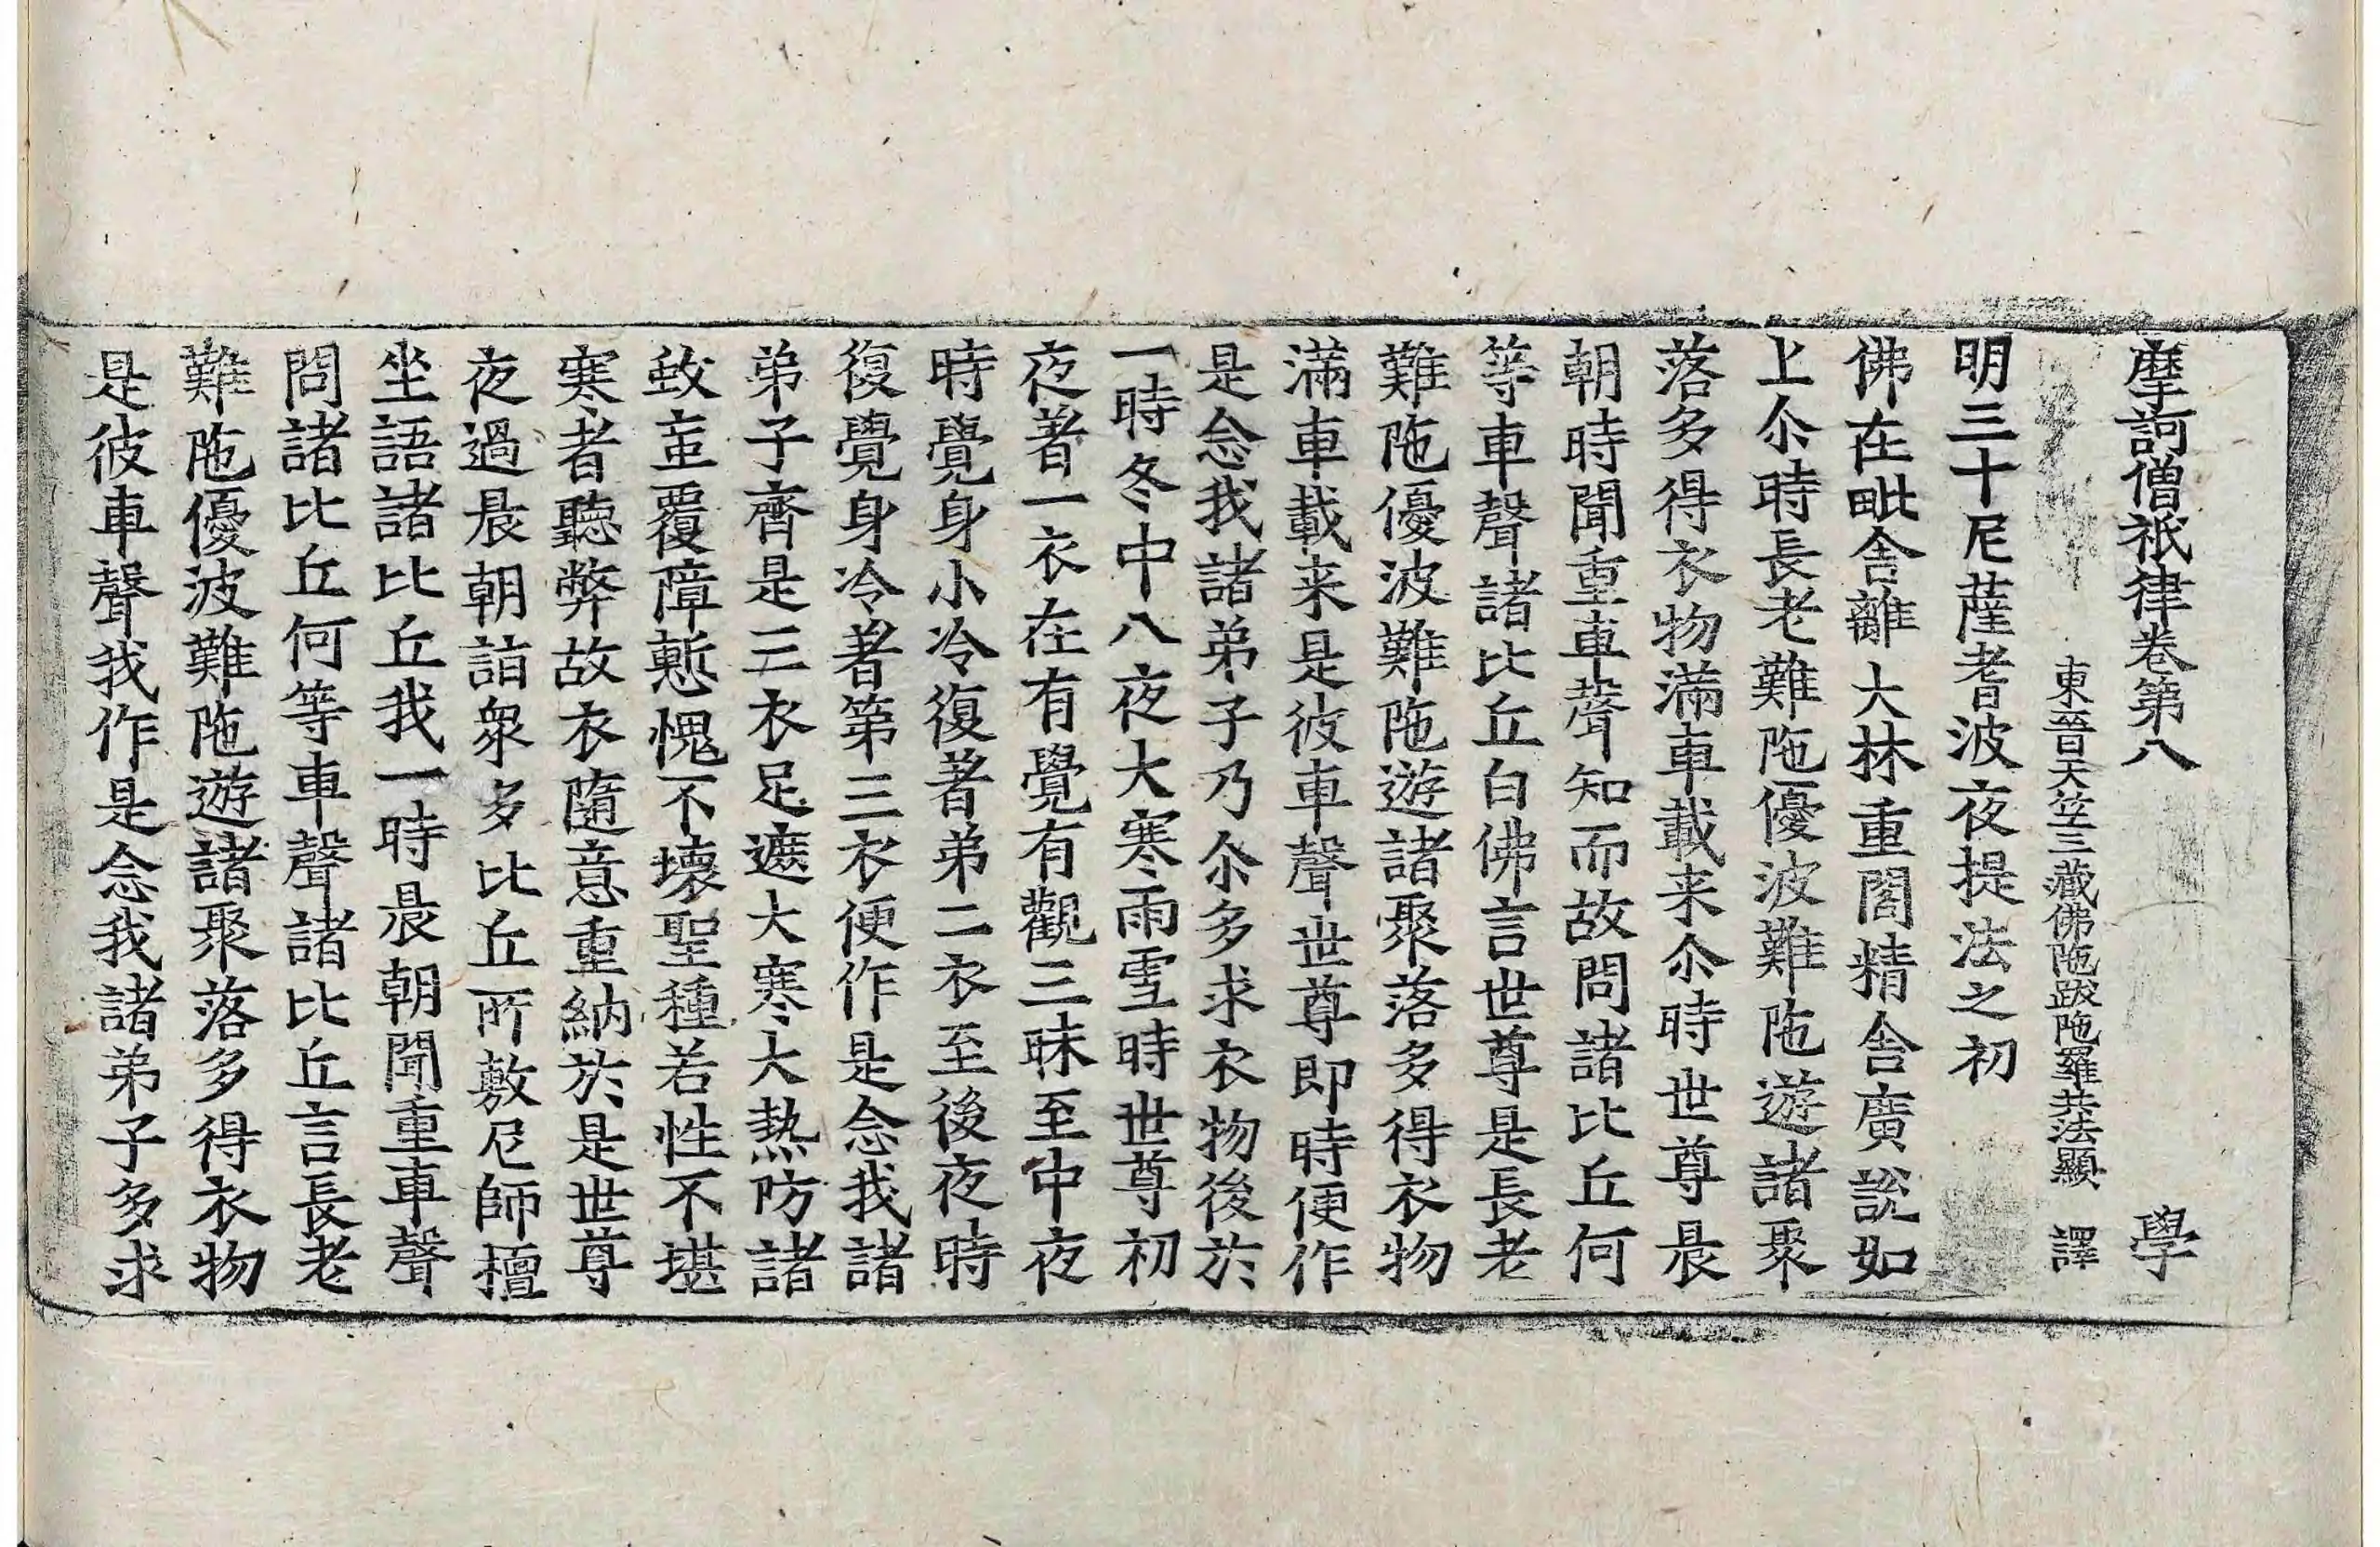 摩訶僧祇律卷第八 學
東晉天竺三藏佛陁跋陁羅共法顯 譯
明三十尼薩耆波夜提法之初
佛在毗舍離大林重閣精舍廣說如
上尒時長老難陁優波難陁遊諸聚
落多得衣物滿車載来尒時世尊晨
朝時聞重車聲知而故問諸比丘何
等車聲諸比丘白佛言世尊是長老
難陁優波難陁遊諸聚落多得衣物
滿車載来是彼車聲世尊即時便作
是念我諸弟子乃尒多求衣物後於
一時冬中八夜大寒雨雪時世尊初
夜著一衣在有覺有觀三昧至中夜
時覺身小冷復著弟二衣至後夜時
復覺身冷著第三衣便作是念我諸
弟子齊是三衣足遮大寒大熱防諸
蚊䖟覆障慙愧不壞聖種若性不堪
寒者聽弊故衣隨意重納於是世尊
夜過晨朝詣衆多比丘所敷尼師檀
坐語諸比丘我一時晨朝聞重車聲
問諸比丘何等車聲諸比丘言長老
難陁優波難陁遊諸聚落多得衣物
是彼車聲我作是念我諸弟子多求